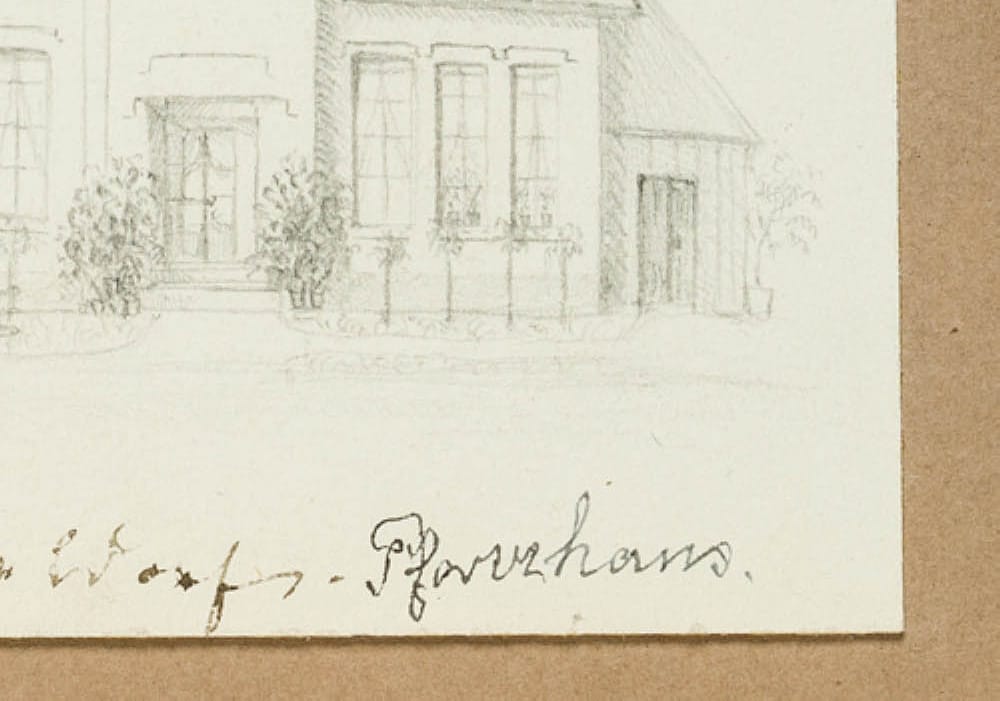 ldorf, - Pfarrhaus.